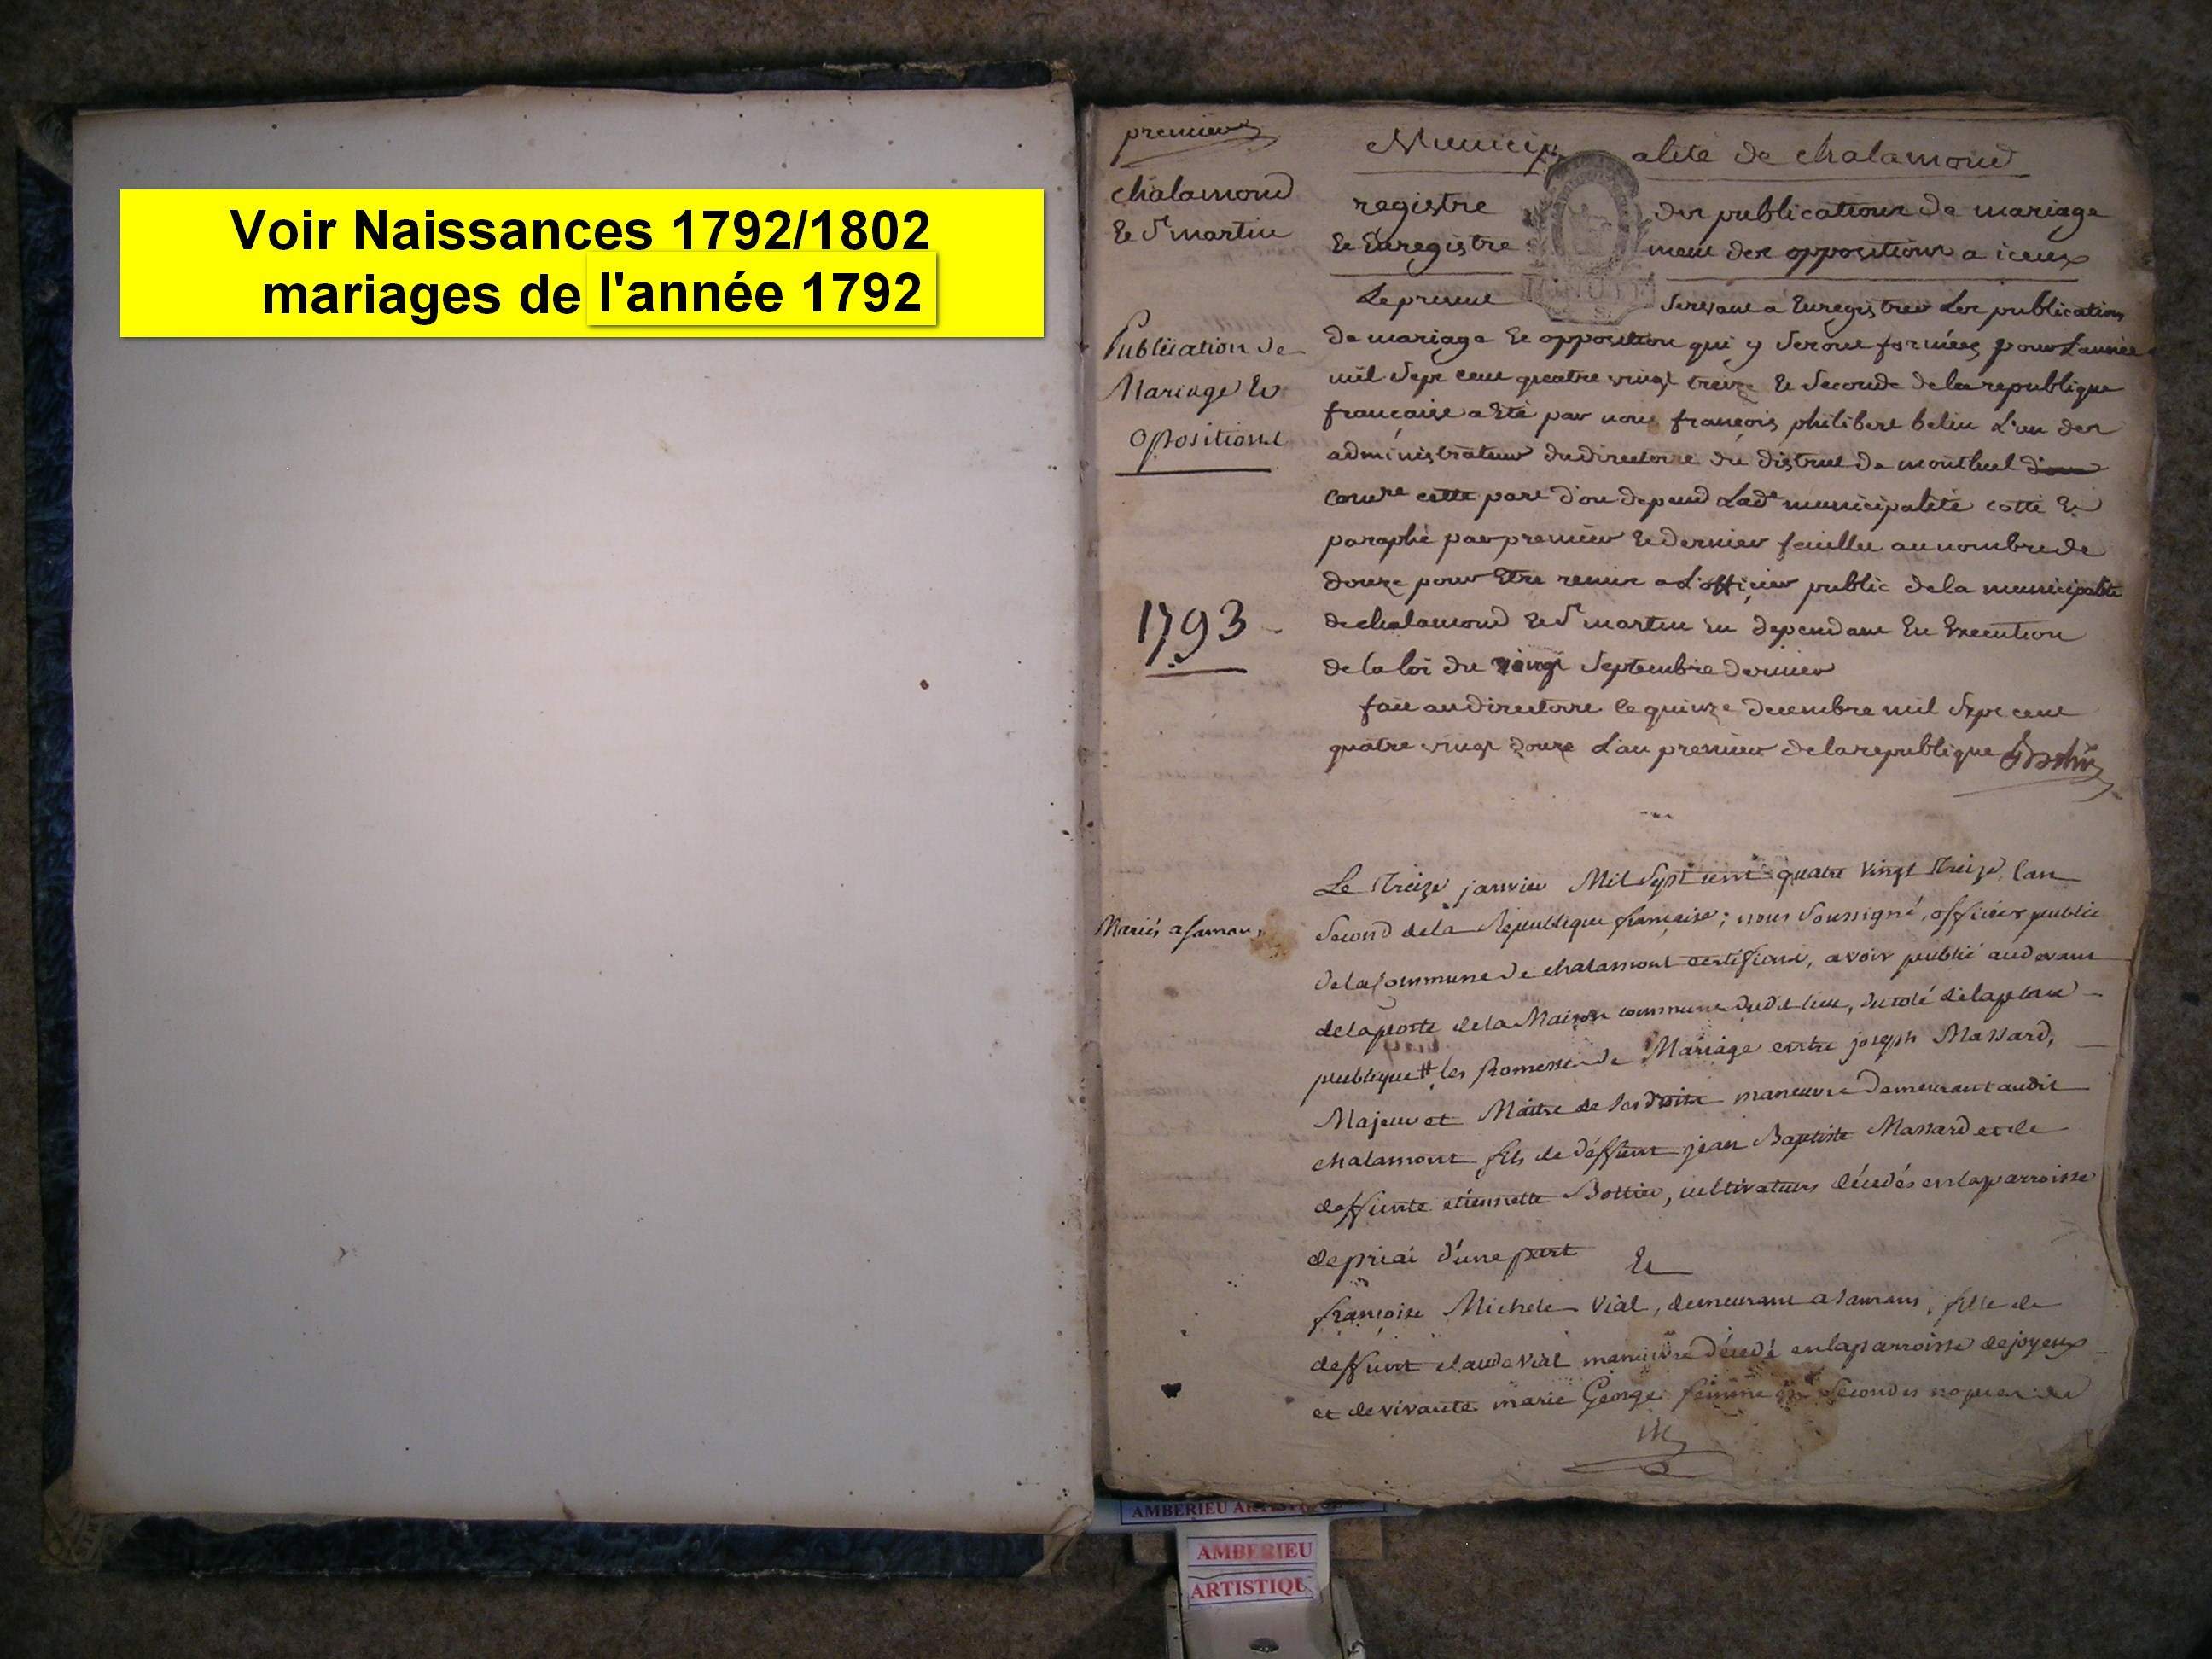 Voir Naissances 1792/1802
mariages de l'année 1792
premier
chalamond
Et St martin
Publication de
Mariage Et
Opositions
1793
Mariés a
Municipalité de chalamond
registre des publications de mariage
Et Enregistrement des oppositions a iceux
Le present servant a Enregistrer Les publications
de mariage Et opposition qui y seront formées pour L'année
mil sept cent quatre vingt treize Et seconde de la republique
francaise a Eté par nous françois philibert belin L'un des
administrateurs du directoire du district de montluel
cette part d'ou depend Lade municipalité cotté Et
paraphé par premier Et dernier feuillet au nombre de
douze pour Etre remis a L'officier public de la municipalité
de chalamond Et St martin En dependant En Execution
de la loi du vingt septembre dernier
fait au directoire le quinze decembre mil sept cent
quatre vingt douze L'an premier de la republique Belin
Le Treize janvier Mil Sept cent quatre vingt Treize, l'an
Second de la République française; nous soussigné, officier public
de la Commune de chalamont certifions, avoir publié au devant
de la porte de la Maison commune dudit lieu, du coté de la place
publique les promesses de Mariage entre joseph Massard,
Majeur et Maitre de ses droits manœuvre demeurant audit
chalamont fils de déffunt jean Baptiste Massard et de
deffunte etiennette Bottier, cultivateurs décedés en la parroisse
de priai d'une part Et
françoise Michele Vial, demeurant a, fille de
deffunt claude Vial manœuvre décedé en la parroisse de joyeux
et de vivante marie George femme en secondes
AMBERIEU ARTISTIQUE
AMBERIEU
ARTISTIQUE